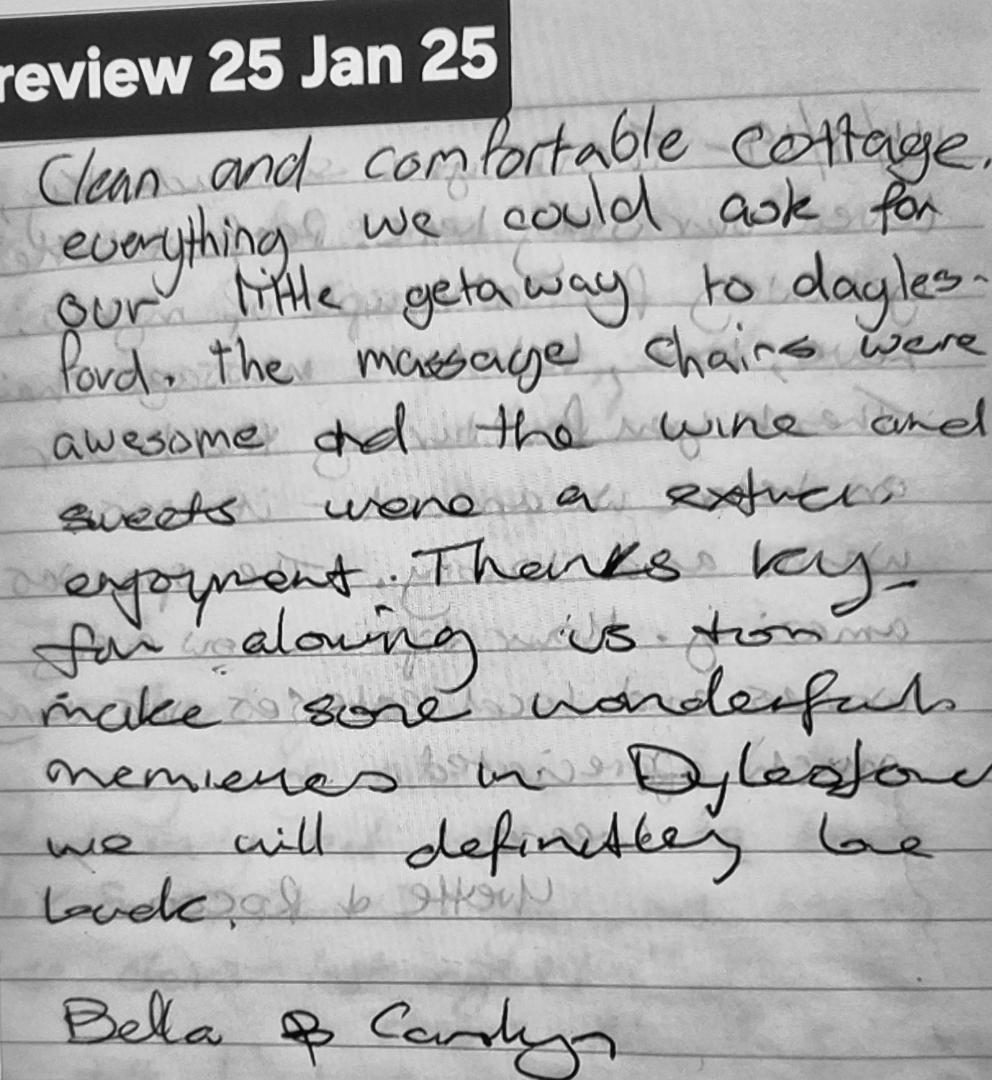 review 25 Jan 25
Clean and comfortable cottage.
everything we could ask for
our little getaway to dayles-
ford. the massage chairs were
awesome and the wine and
sweets were a extra
enjoyment. Thanks Kay
for alowing us to
make some wonderful
memieres in Dylesford
we will definetley be
back.
Bella & Carolyn